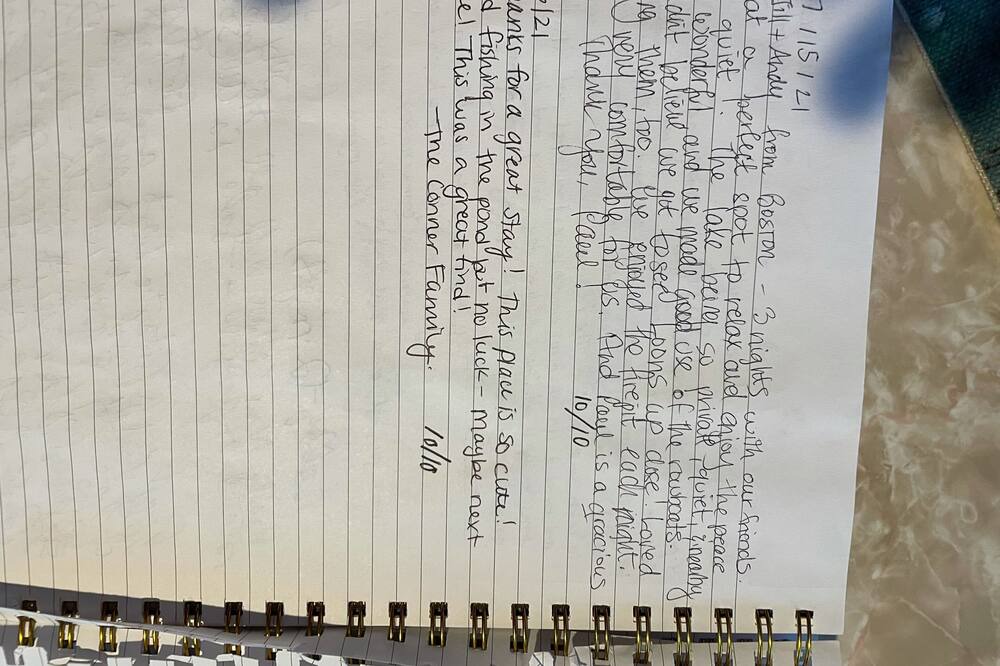 7/15/21
Jill + Andy from Boston - 3 nights with our friends.
at a perfect spot to relax and enjoy the peace
quiet! The lake being so private, quiet, & nearby
wonderful and we made good use of the rowboats.
believe we got to see loons up close! Loved
them, too. We enjoyed the firepit each night.
very comfortable for us. And Paul is a gracious
Thank you, Paul! 10/10
/21
anks for a great stay! This place is so cute!
d fishing in the pond but no luck - maybe next
This was a great find!
- The Conner Family. 10/10